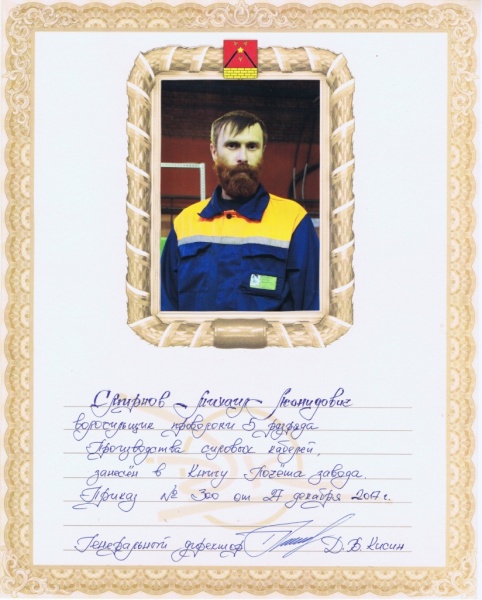 Смирнов Михаил Леонидович
волосильщик проволоки 5 разряда
Производства силовых кабелей,
занесён в Книгу Почёта завода.
Приказ № 300 от 27 декабря 2017 г.
Генеральный директор Д.В. Кисин